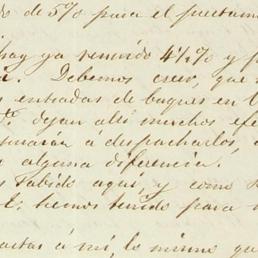 de 5% para el
hay ya reunido 4½% y
Debemos creer, que
entradas de buques en
dejan alli muchos
á despacharlos,
alguna diferencia.
aquí, y como
hemos tenido para
á mi, lo mismo que